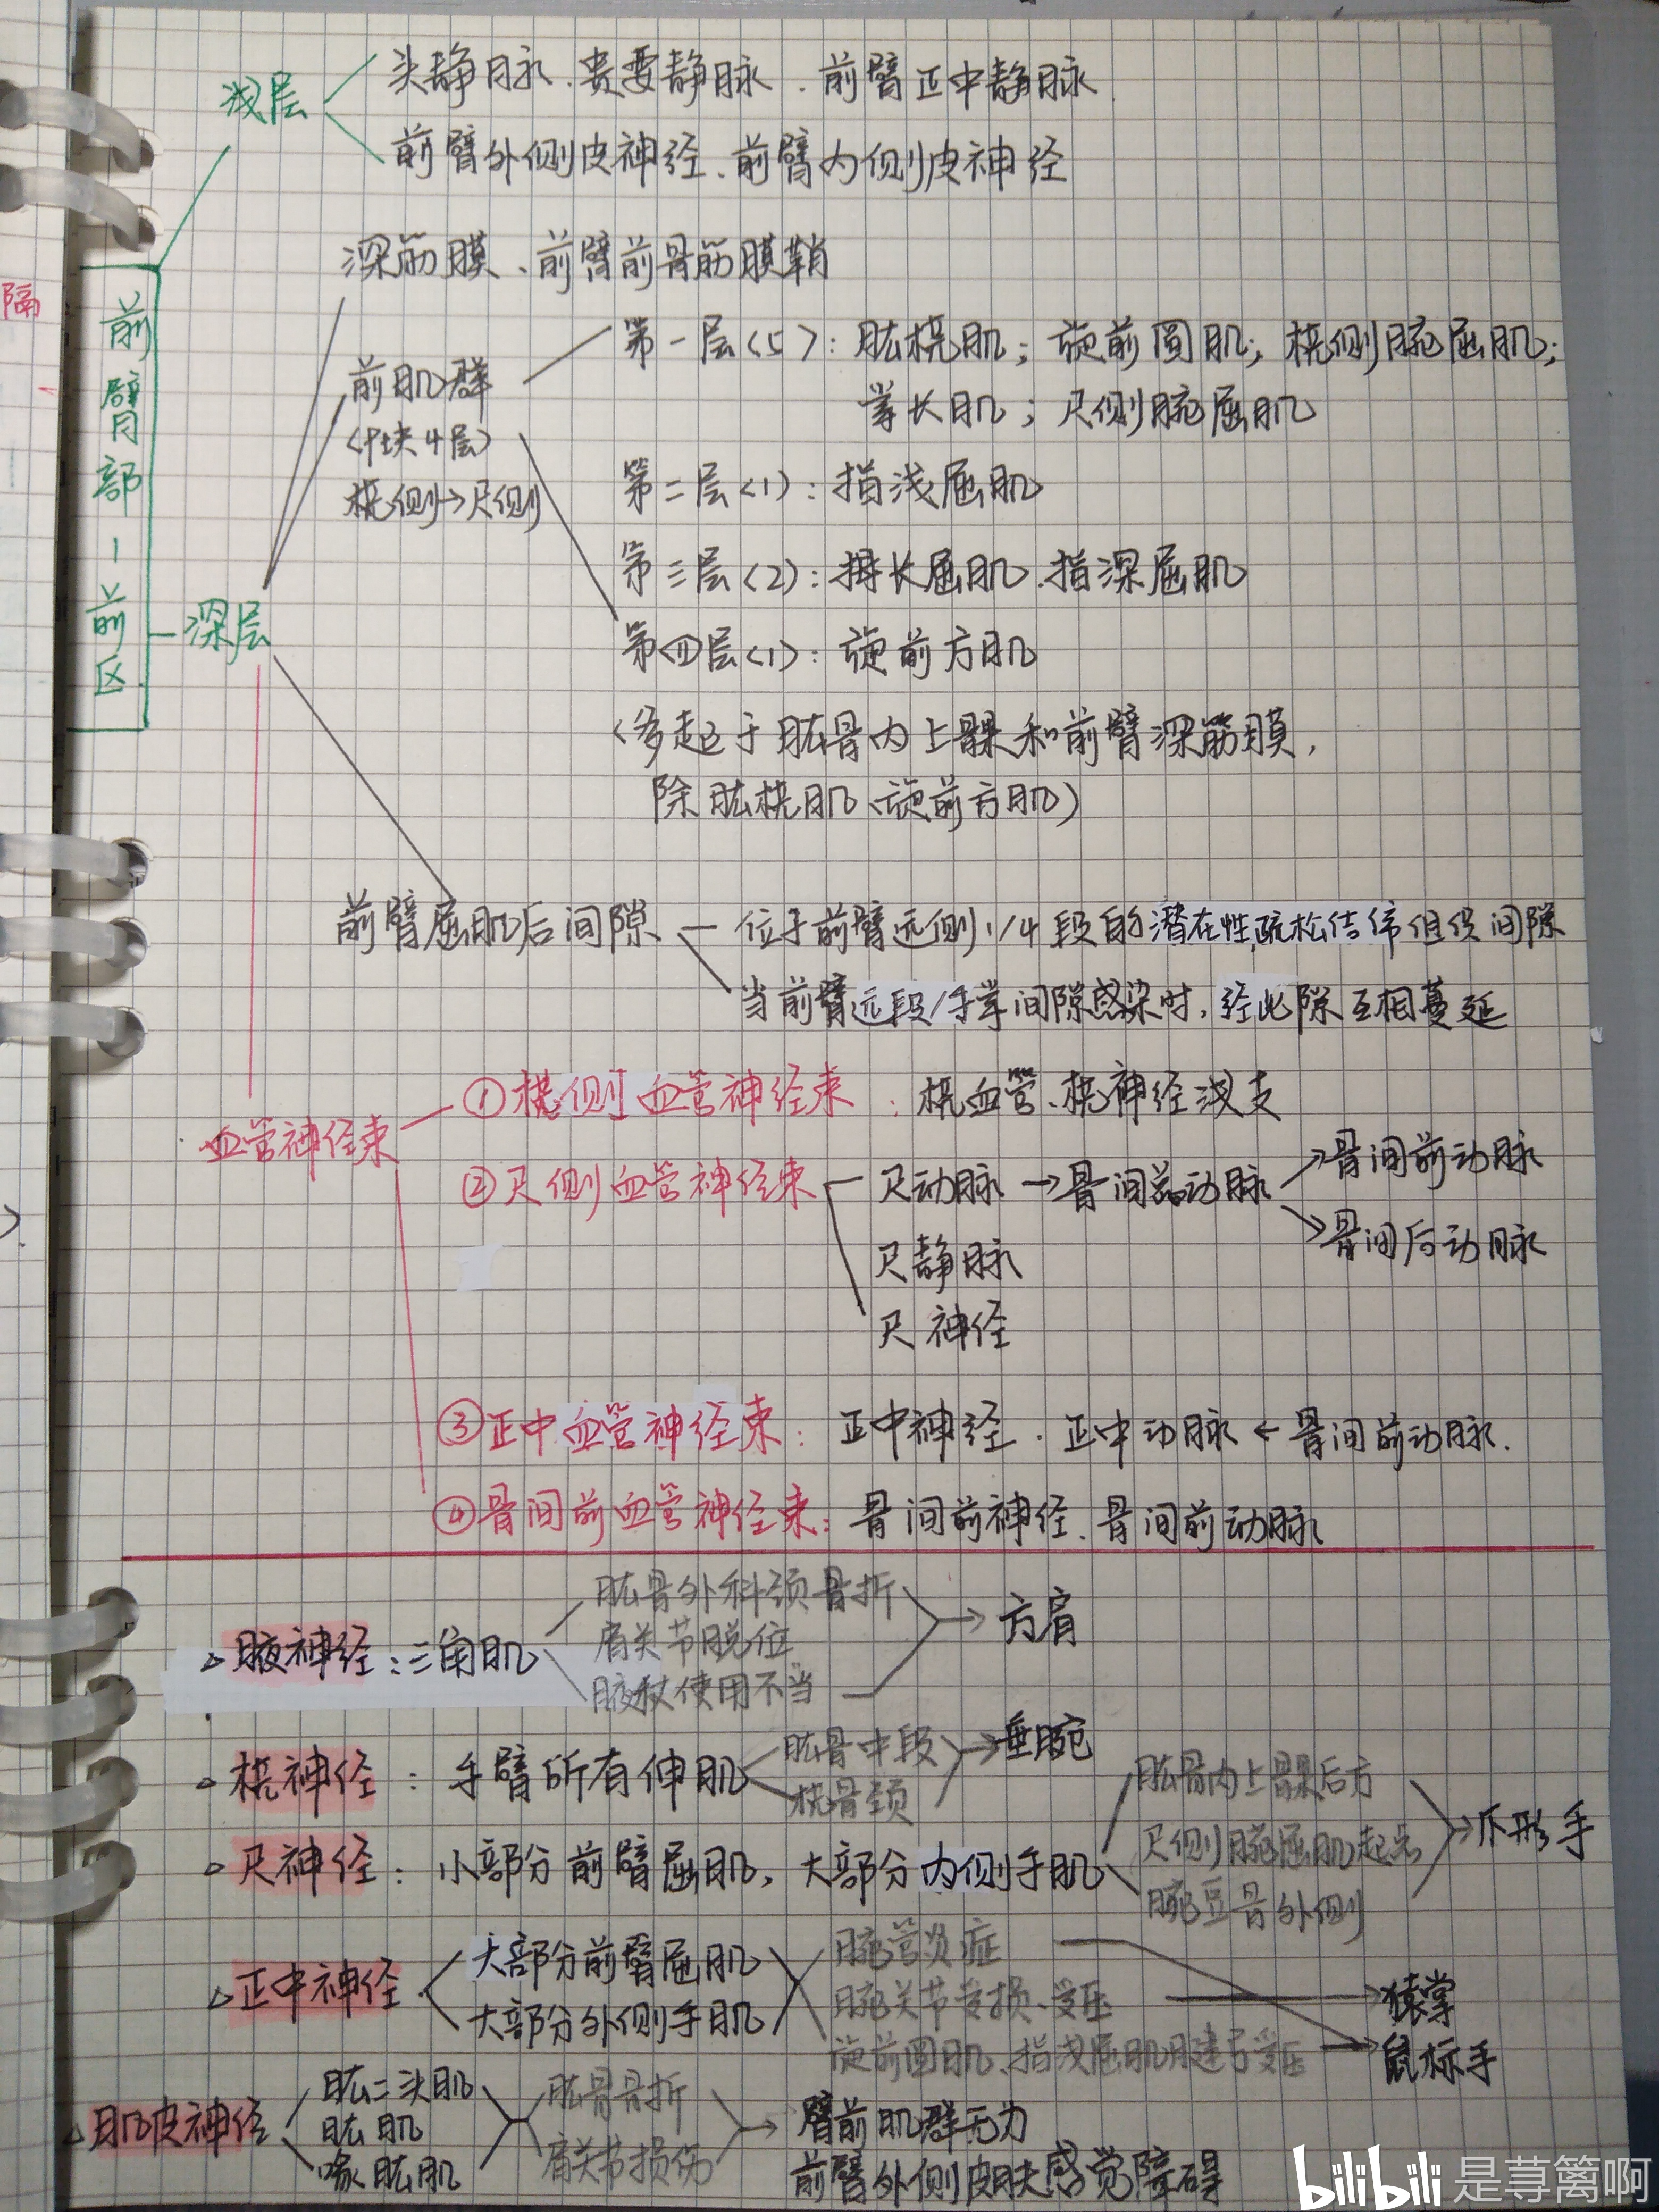 浅层
头静脉、贵要静脉、前臂正中静脉
前臂外侧皮神经、前臂内侧皮神经
隔
前臂部-前区
深层
深筋膜、前臂前骨筋膜鞘
前肌群
(9块4层)
桡侧→尺侧
第一层(5):肱桡肌;旋前圆肌;桡侧腕屈肌;
掌长肌;尺侧腕屈肌
第二层(1):指浅屈肌
第三层(2):拇长屈肌、指深屈肌
第四层(1):旋前方肌
(多起于肱骨内上髁和前臂深筋膜,
除肱桡肌、旋前方肌)
前臂屈肌后间隙
位于前臂远侧1/4段的潜在性疏松结缔组织间隙
当前臂远段/手掌间隙感染时,经此隙互相蔓延
血管神经束
①桡侧血管神经束:桡血管、桡神经浅支
②尺侧血管神经束
尺动脉→骨间总动脉
→骨间前动脉
→骨间后动脉
尺静脉
尺神经
③正中血管神经束:正中神经、正中动脉←骨间前动脉.
④骨间前血管神经束:骨间前神经、骨间前动脉
△腋神经:三角肌
肱骨外科颈骨折
肩关节脱位
腋杖使用不当
→方肩
△桡神经:手臂所有伸肌
肱骨中段
桡骨颈
→垂腕
△尺神经:小部分前臂屈肌,大部分内侧手肌
肱骨内上髁后方
尺侧腕屈肌起点
豌豆骨外侧
→爪形手
△正中神经
大部分前臂屈肌
大部分外侧手肌
腕管炎症
腕关节受损、受压
旋前圆肌、指浅屈肌腱弓受压
→猿掌
→鼠标手
△肌皮神经
肱二头肌
肱肌
喙肱肌
肱骨骨折
肩关节损伤
→臂前肌群无力
前臂外侧皮肤感觉障碍
bilibili 是荨篱啊